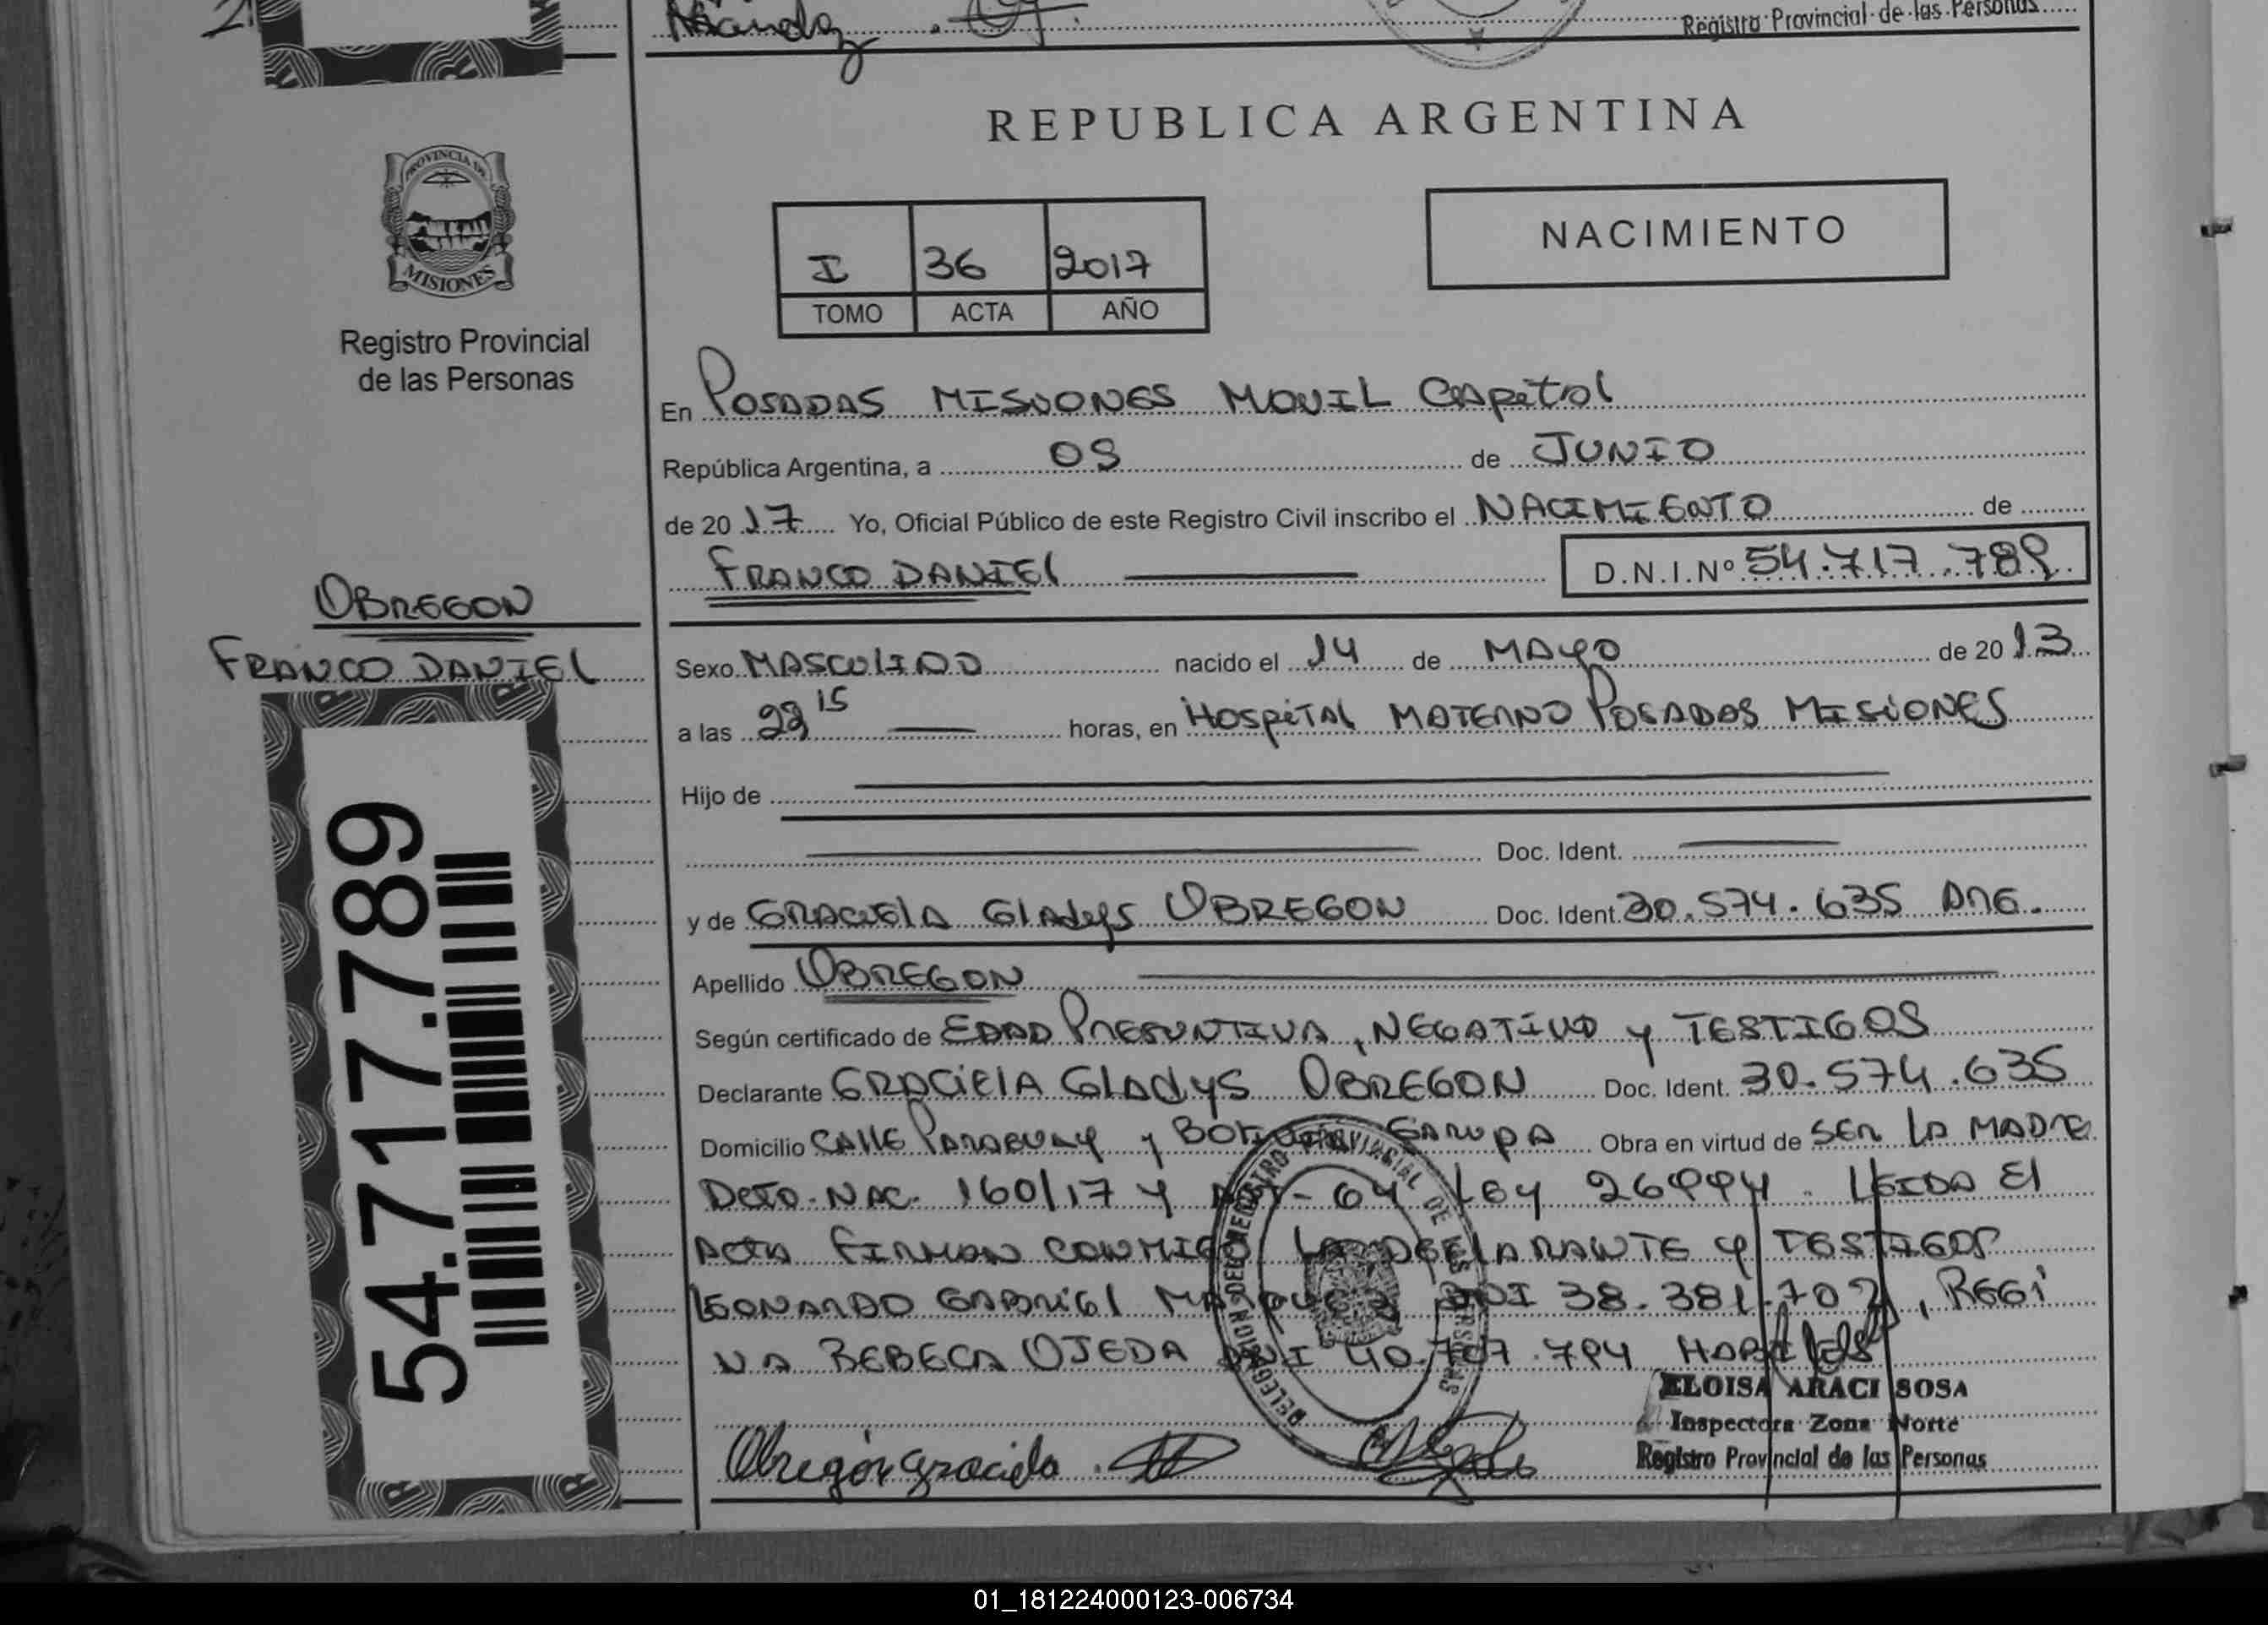 Registro Provincial de las Personas
REPUBLICA ARGENTINA
PROVINCIA DE
MISIONES
Registro Provincial
de las Personas
I 36 2017
TOMO ACTA AÑO
NACIMIENTO
En POSADAS MISIONES MOVIL CAPITAL
República Argentina, a 05 de JUNIO
de 20 17 Yo, Oficial Público de este Registro Civil inscribo el NACIMIENTO de
FRANCO DANIEL D.N.I.Nº 54.717.789
OBREGON
FRANCO DANIEL
54.717.789
Sexo MASCULINO nacido el 14 de MAYO de 20 13
a las 22 15 horas, en HOSPITAL MATERNO POSADAS MISIONES
Hijo de
Doc. Ident.
y de GRACIELA GLADYS OBREGON Doc. Ident. 30.574.635 ARG.
Apellido OBREGON
Según certificado de EDAD PRESUNTIVA, NEGATIVO Y TESTIGOS
Declarante GRACIELA GLADYS OBREGON Doc. Ident. 30.574.635
Domicilio CALLE PARAGUAY y GARUPA Obra en virtud de SER LA MADRE
DCTO. NAC. 160/17 Y ART- 64 LEY 26994. LEIDA EL
ACTA FIRMAN CONMIGO LA DECLARANTE Y TESTIGOS
LEONARDO GABRIEL DNI 38.381.702, REGI
NA REBECA OJEDA DNI 40.797.794
ELOISA ARACI SOSA
Inspectora Zona Norte
Registro Provincial de las Personas
Obregón Graciela
01_181224000123-006734